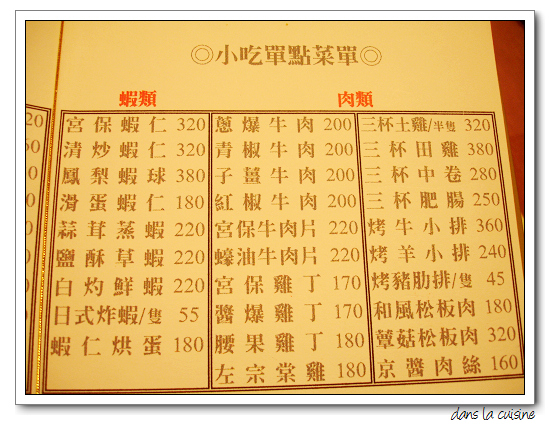 ◎小吃單點菜單◎
蝦類
肉類
宮保蝦仁 320
清炒蝦仁 320
鳳梨蝦球 380
滑蛋蝦仁 180
蒜茸蒸蝦 220
鹽酥草蝦 220
白灼鮮蝦 220
日式炸蝦/隻 55
蝦仁烘蛋 180
蔥爆牛肉 200
青椒牛肉 200
子薑牛肉 200
紅椒牛肉 200
宮保牛肉片 220
蠔油牛肉片 220
宮保雞丁 170
醬爆雞丁 170
腰果雞丁 180
左宗棠雞 180
三杯土雞/半隻 320
三杯田雞 380
三杯中卷 280
三杯肥腸 250
烤牛小排 360
烤羊小排 240
烤豬肋排/隻 45
和風松板肉 180
蕈菇松板肉 320
京醬肉絲 160
dans la cuisine